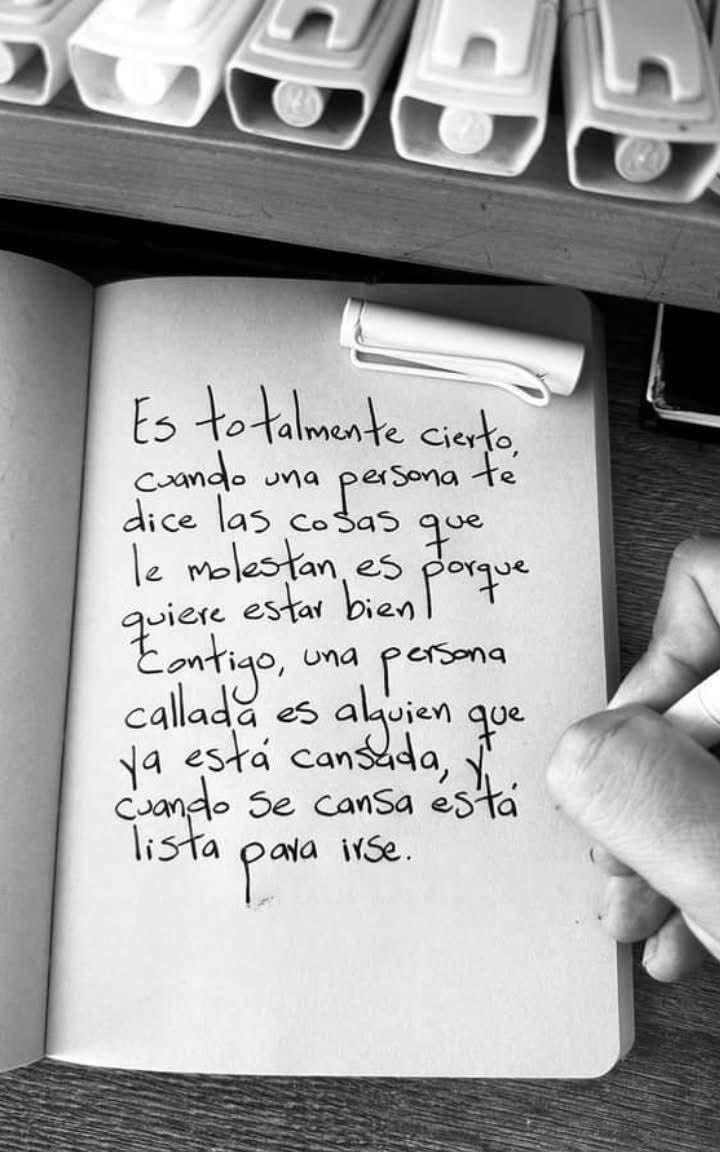 Es totalmente cierto,
cuando una persona te
dice las cosas que
le molestan, es porque
quiere estar bien
contigo, una persona
callada es alguien que
ya está cansada, y
cuando se cansa está
lista para irse.